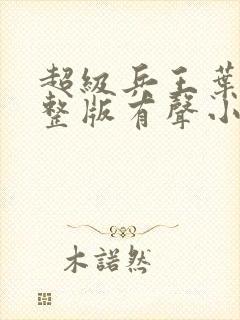 超級兵王葉
整版有聲小
木諾然